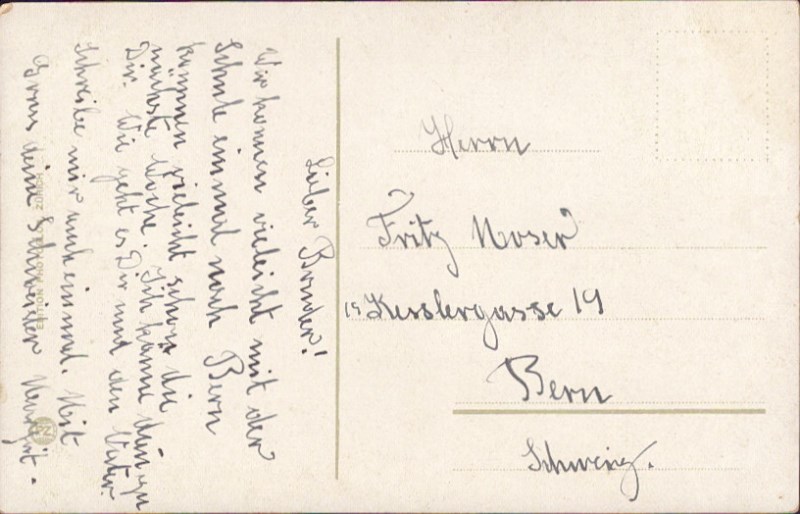 Lieber Bruder!
Wir konnen vieleicht mit der
Schule einmal nach Bern
können vieleicht schon die
nächste Woche. Ich kome dan zu
Dir. Wie geht es Dir und den Vater.
Schreibe mir auch einmal. Mit
Gruss deine Schwester
Herrn
Fritz Moser
19 Kesslergasse 19
Bern
Schweiz.